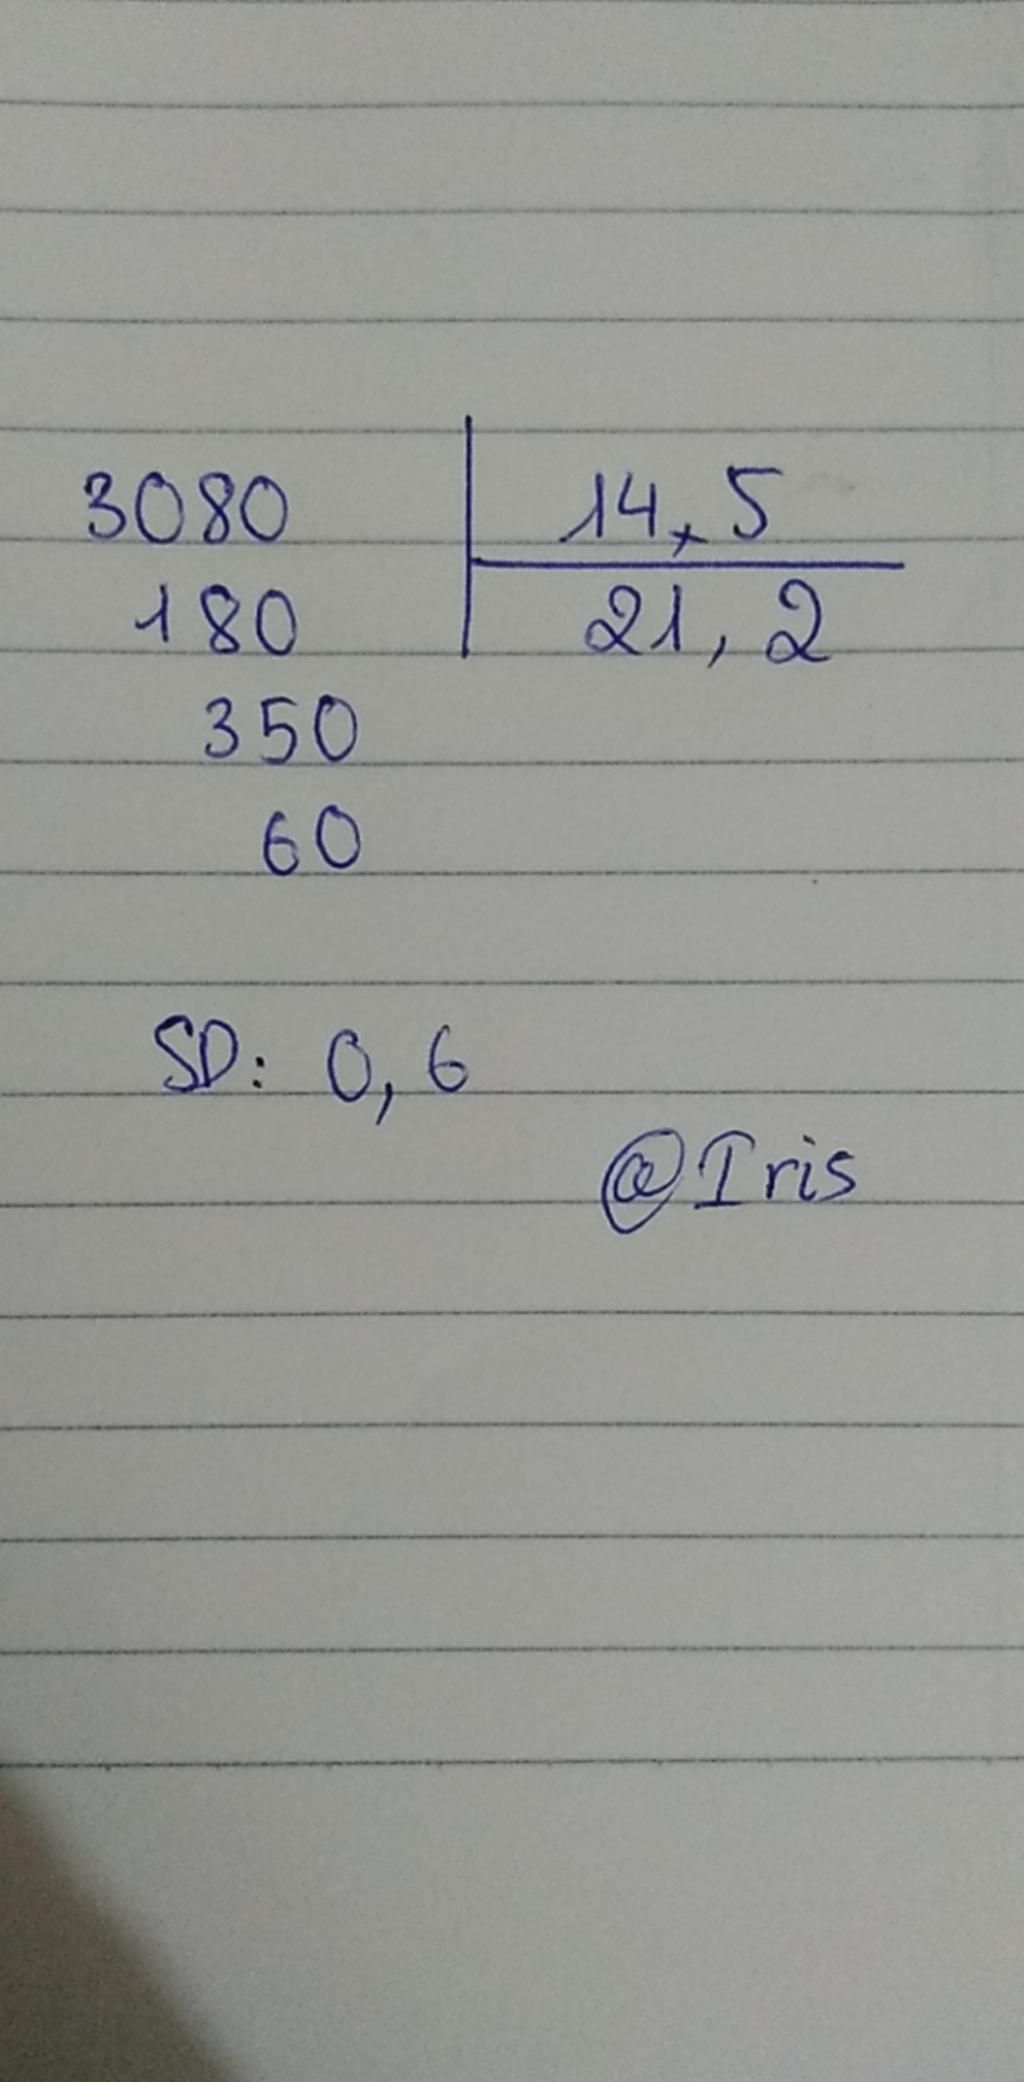 3080 14,5
180 21,2
350
60
SD: 0,6
@Iris